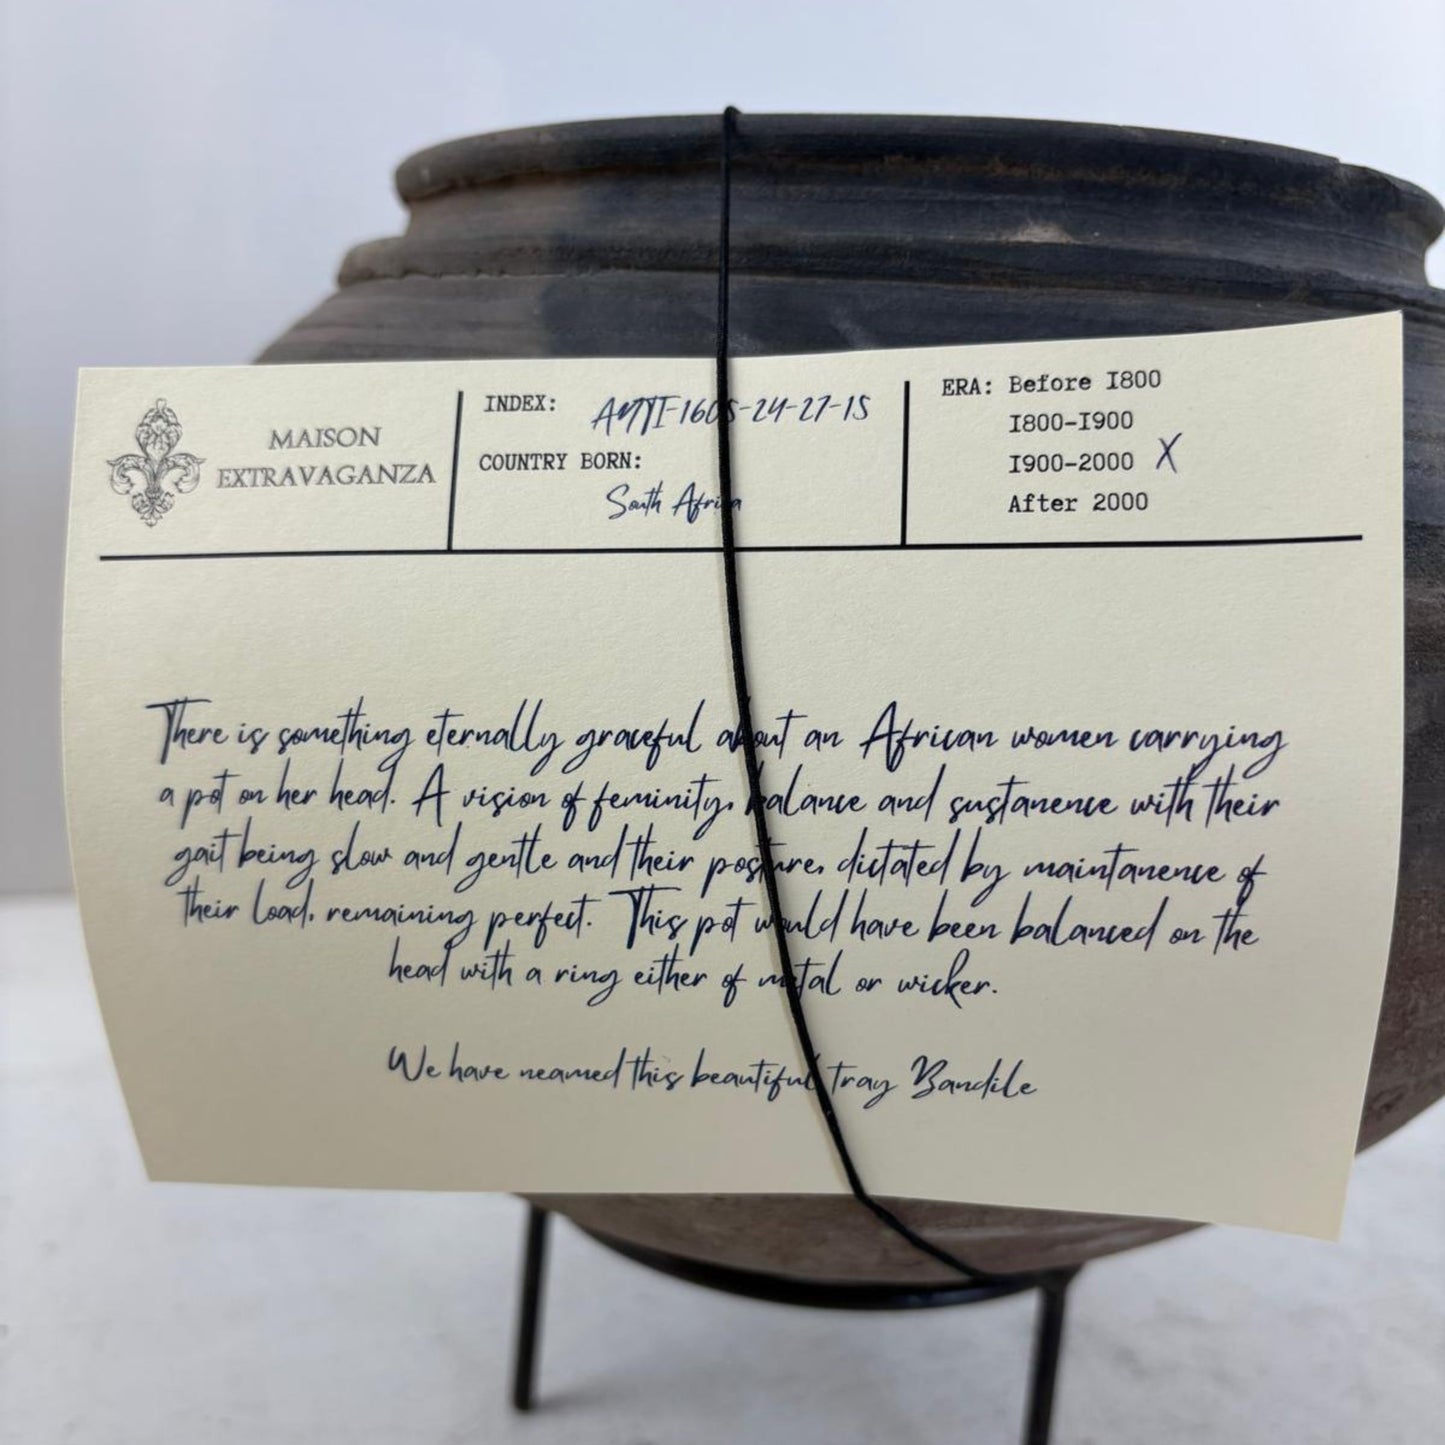 MAISON
EXTRAVAGANZA
INDEX: ANTI-1605-24-27-15
COUNTRY BORN:
South Africa
ERA: Before 1800
1800-1900
1900-2000 X
After 2000
There is something eternally graceful about an African women carrying
a pot on her head. A vision of feminity, balance and sustanence with their
gait being slow and gentle and their posture, dictated by maintanence of
their load, remaining perfect. This pot would have been balanced on the
head with a ring either of metal or wicker.
We have neamed this beautiful tray Bandile